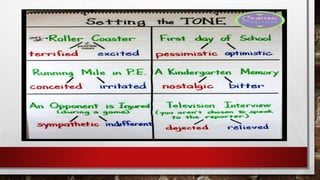 Setting the TONE
Roller Coaster
terrified excited
First day of School
pessimistic optimistic
Running Mile in P.E.
conceited irritated
A Kindergarten Memory
nostalgic bitter
An Opponent is Injured
(during a game)
sympathetic indifferent
Television Interview
(you aren't chosen to speak
to the reporter)
dejected relieved